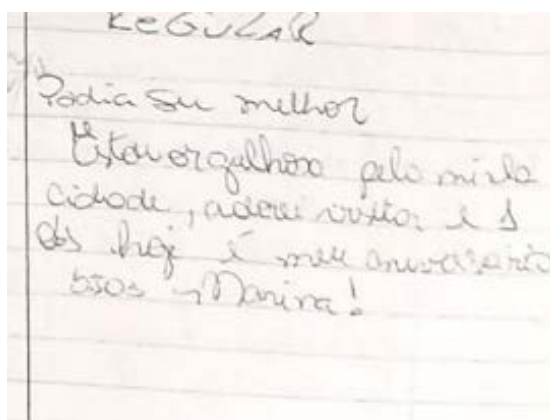 REGULAR
Podia ser melhor
Estou orgulhosa pela minha
cidade, adorei visitar e 1
obs hoje é meu aniversario
bjos Marina!